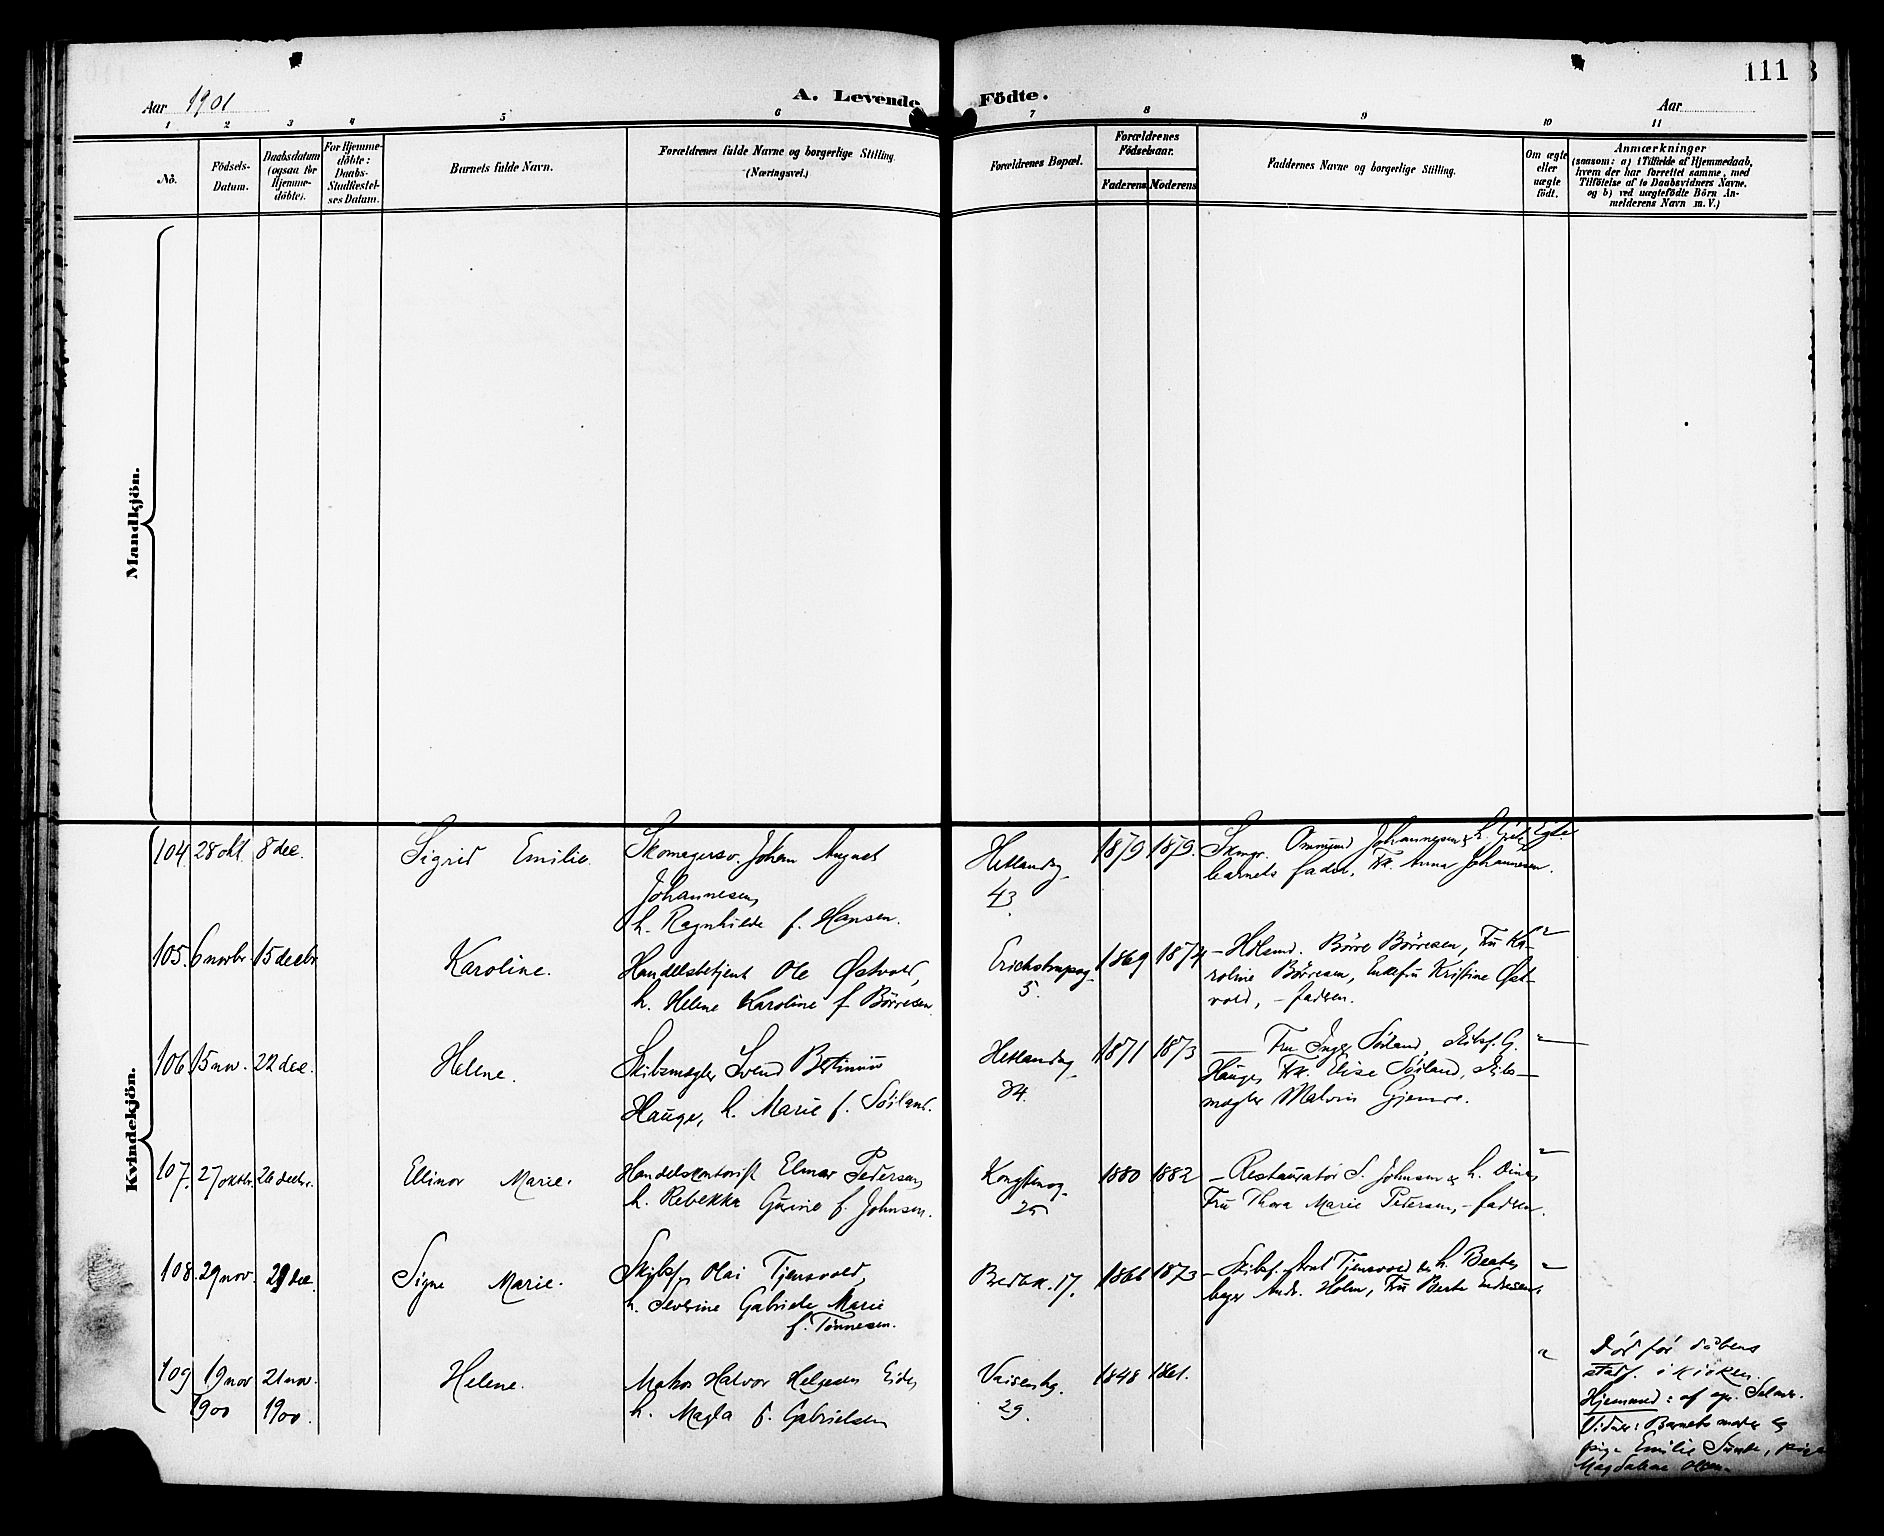 111
Aar 1901
A. Levende Födte.
Aar
1 2 3 4 5 6 7 8 9 10 11
Nô.
Födsels-
Datum.
Daabsdatum
(ogsaa for
Hjemme-
döbte).
For Hjemme-
döbte:
Daabs-
Stadfæstel-
ses Datum.
Barnets fulde Navn.
Forældrenes fulde Navne og borgerlige Stilling
(Næringsvei.)
Forældrenes Bopæl.
Forældrenes
Födselsaar.
Faderens Moderens
Faddernes Navne og borgerlige Stilling.
Om ægte
eller
uægte
födt.
Anmærkninger
(saasom: a) i Tilfælde af Hjemmedaab,
hvem der har forrettet samme, med
Tilföielse af to Daabsvidners Navne.
og b) ved uægtefödte Börn An-
melderens Navn m. V.)
Mandkjön.
Kvindekjön.
104. 28 okt. 8 dec. Sigrid Emilie. Skomagersv. Johan August
Johannesen,
h. Ragnhilde f. Hansen.
Hetlandsg.
43.
1879 1879.
Skmgr. Ommund Johannesen & h.
barnets fader, Frk. Anna Johannesen.
105. 6 novbr. 15 decbr. Karoline. Handelsbetjent Ole Østvold,
h. Helene Karoline f. Børresen.
5.
1869 1874
Børre Børresen, Fru Ka-
roline Børresen, Enkefru Kristine Øst-
vold, – faderen.
"
106. 15 nov. 22 dec. Helene. Skibsmægler Svend Bertinius
Hauge, h. Marie f. Söiland.
Hetlandsg.
34.
1871 1873
— Fru Inger Söiland, Skibsf. G.
Hauge, Frk. Elise Söiland, Skibs-
mægler Gjemre.
"
107. 27 oktbr. 26 decbr. Elinor Marie. Handelskontorist Elmar Pedersen,
h. Rebekka Gurine f. Johnsen.
Kongstenog.
25
1880 1882
– Restauratör S. Johnsen & h. Dina,
Fru Thora Marie Petersen, – faderen.
"
108. 29 nov. 29 dec. Signe Marie. Skibsf. Olai Tjensvold,
h. Severine Gabriele Marie
f. Tönnesen.
Bredbk. 17.
1866 1873
– Skibsf. Tjensvold & h. Beate,
Andr. Holm, Fru Berte Endresen,
"
109 19 nov 21 nov.
1900 1900.
Helene. Halvor Helgesen Eide,
h. Magla f. Gabrielsen
Vaisenhg.
29.
1848 1861.
"
Död för daabens
stadf. i kirken.
Hjemmed: af
Vidner: Barnets moder &
pige Emilie
Magdalene Olsen.